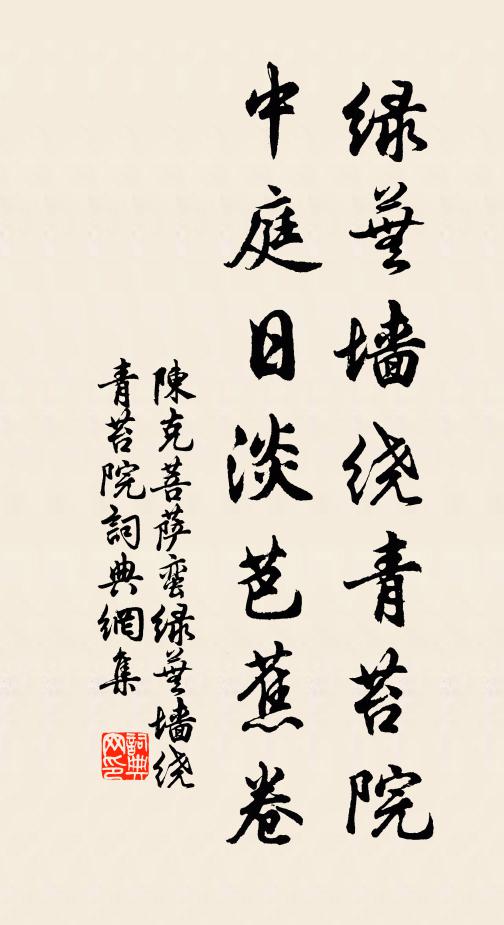 绿蕪墙绕青苔院
中庭日淡芭蕉卷
陳克菩萨蛮绿蕪墙绕
青苔院詞典網集
詞典
网印